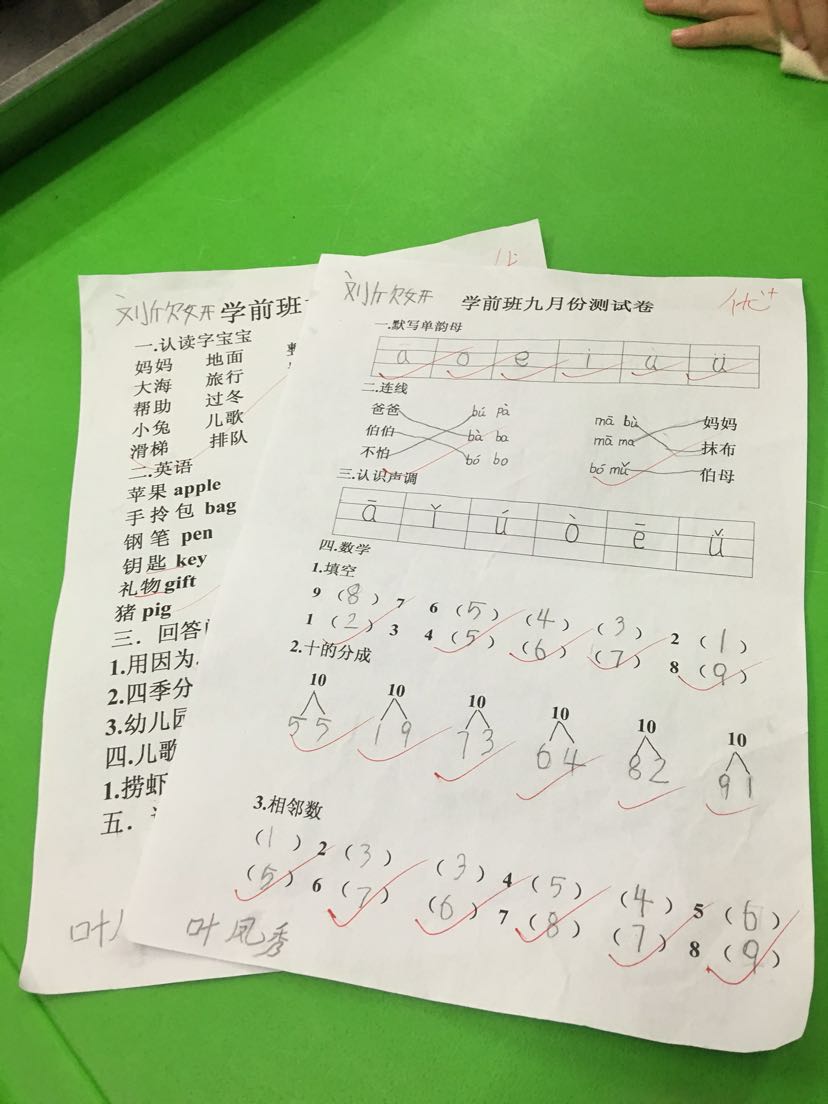 刘欣妍 学前班
一.认读字宝宝
妈妈 地面
大海 旅行
帮助 过冬
小兔 儿歌
滑梯 排队
二.英语
苹果 apple
手拎包 bag
钢笔 pen
钥匙 key
礼物 gift
猪 pig
三. 回答
1.用因为
2.四季分
3.幼儿园
四.儿歌
1.捞虾
五.
叶
刘欣妍 学前班九月份测试卷 优+
一.默写单韵母
ɑ o e i u ü
二.连线
爸爸 bú pà mā bù 妈妈
伯伯 bà ba mā ma 抹布
不怕 bó bo bó mǔ 伯母
三.认识声调
ā ǐ ú ò ē ǚ
四.数学
1.填空
9 (8) 7 6 (5) (4) (3) 2 (1)
1 (2) 3 4 (5) (6) (7) 8 (9)
2.十的分成
10 10 10 10 10 10
5 5 1 9 7 3 6 4 8 2 9 1
3.相邻数
(1) 2 (3) (3) 4 (5) (4) 5 (6)
(5) 6 (7) (6) 7 (8) (7) 8 (9)
叶凤秀